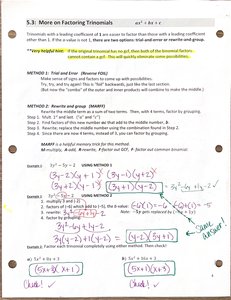 5.3: More on Factoring Trinomials ax² + bx + c
Trinomials with a leading coefficient of 1 are easier to factor than those with a leading coefficient
other than 1. If the value is not 1, there are two options: trial-and-error or rewrite-and-group.
**Very helpful hint: If the original trinomial has no gcf, then both of the binomial factors
cannot contain a gcf. This will quickly eliminate some possibilities.
METHOD 1: Trial and Error (Reverse FOIL)
Make sense of signs and factors to come up with possibilities.
Try, try, and try again! This is "foil" backwards, just like the last section.
(But now the "combo" of the outer and inner products will combine to make the middle.)
METHOD 2: Rewrite and group (MARFF)
Rewrite the middle term as a sum of two terms. Then, with 4 terms, factor by grouping.
Step 1. Mult. 1st and last. ("a" and "c")
Step 2. Find factors of this new number ac that add to the middle number, b.
Step 3. Rewrite, replace the middle number using the combination found in Step 2.
Step 4. Since there are now 4 terms, instead of 3, you can factor by grouping.
MARFF is a helpful memory trick for this method.
M-multiply, A-add, R-rewrite, F-factor out GCF, F-factor out common binomial
Example 1 3y² – 5y – 2 USING METHOD 1
(3y-2)(y+1)
(3y-1)(y+2)
(3y+2)(y-1)
(3y+1)(y-2)
Example 1 3y² – 5y – 2 USING METHOD 2
1. multiply 3 and (-2)
2. factors of (-6) which add to (-5), the b value:
(-6)(1) = -6
3. rewrite:
4. factor by grouping
3y(y-2)+1(y-2)
(y-2)(3y+1)
same answer!
Example 2: Factor each trinomial completely using either method. Then check!
a) 5x² + 8x + 3
b) 5x² + 16x + 3
(5x+3)(x+1)
(5x+1)(x+3)
Check! ✓
Check! ✓